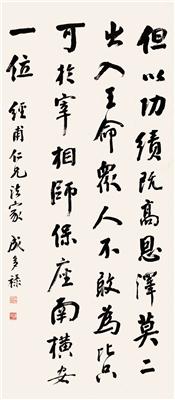 但以功绩既高恩澤莫二
出入王命衆人不敢為比只
可於宰相師保座南横安
一位
經甫仁兄法家 成多禄